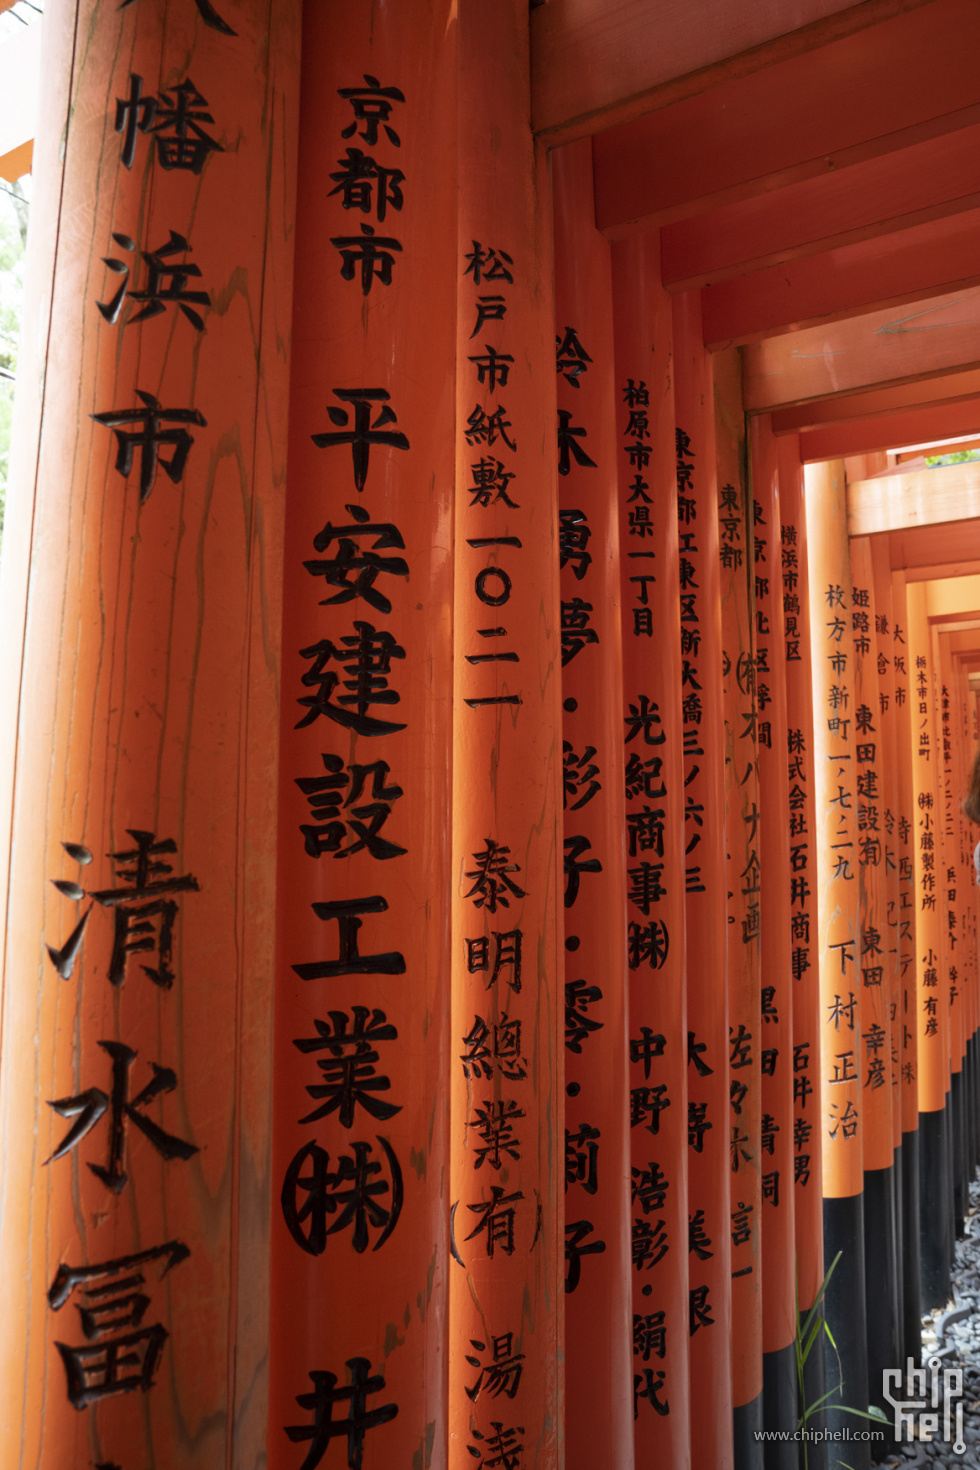 八幡浜市 清水冨
京都市 平安建設工業㈱ 井
松戸市紙敷一〇二一 泰明總業(有) 湯浅
鈴木勇夢・彩子・零・莉子
柏原市大県一丁目 光紀商事㈱ 中野 浩彰・絹代
東京都江東区新大橋三ノ六ノ三 大嵜 美根
東京都 ㈲オハナ企画 佐々木 言一
東京都北区浮間 黒田 清嗣
横浜市鶴見区 株式会社石井商事 石井幸男
枚方市新町一、七、二九 下村正治
姫路市 東田建設㈲ 東田 幸彦
鎌倉市 鈴木
大阪市 寺西エステート㈱
栃木市日ノ出町 ㈱小藤製作所 小藤有彦
chip
hell
www.chiphell.com